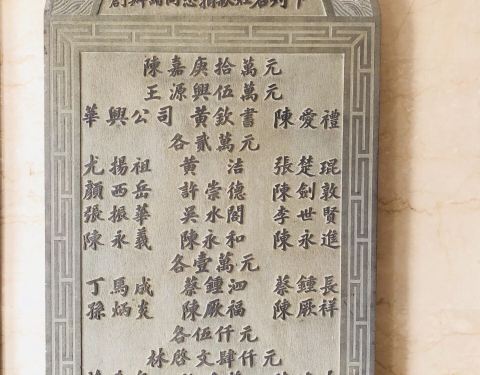 創辦諸同志捐款姓名列下
陳嘉庚拾萬元
王源興伍萬元
華興公司 黃欽書 陳愛禮
各貳萬元
尤揚祖 黃洁 張楚琨
顏西岳 許崇德 陳劍敦
張振華 吳水閣 李世賢
陳永義 陳永和 陳永進
各壹萬元
丁馬成 蔡鍾泗 蔡鍾長
孫炳炎 陳厥福 陳厥祥
各伍仟元
林啓文肆仟元